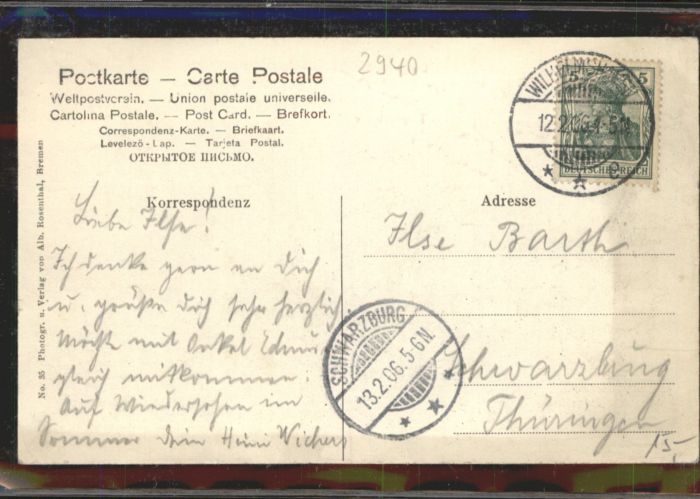 2940
Postkarte — Carte Postale
Weltpostverein. — Union postale universelle.
Cartolina Postale. — Post Card. — Brefkort.
Correspondenz-Karte. — Briefkaart.
Levelező-Lap. — Tarjeta Postal.
ОТКРЫТОЕ ПИСЬМО.
12.2.06.4-5N.
5 5
DEUTSCHES REICH
Korrespondenz
Adresse
Liebe Ilse!
Ich denke gern an Dich
u. grüße Dich sehr herzlich
Möchte mit Onkel
gleich mitkommen.
Auf Wiedersehen im
Sommer Dein Heini Wichers
Ilse Barth
Schwarzburg
Thüringen
SCHWARZBURG
13.2.06.5-6N.
15,
No. 35 Photogr. u. Verlag von Alb. Rosenthal, Bremen